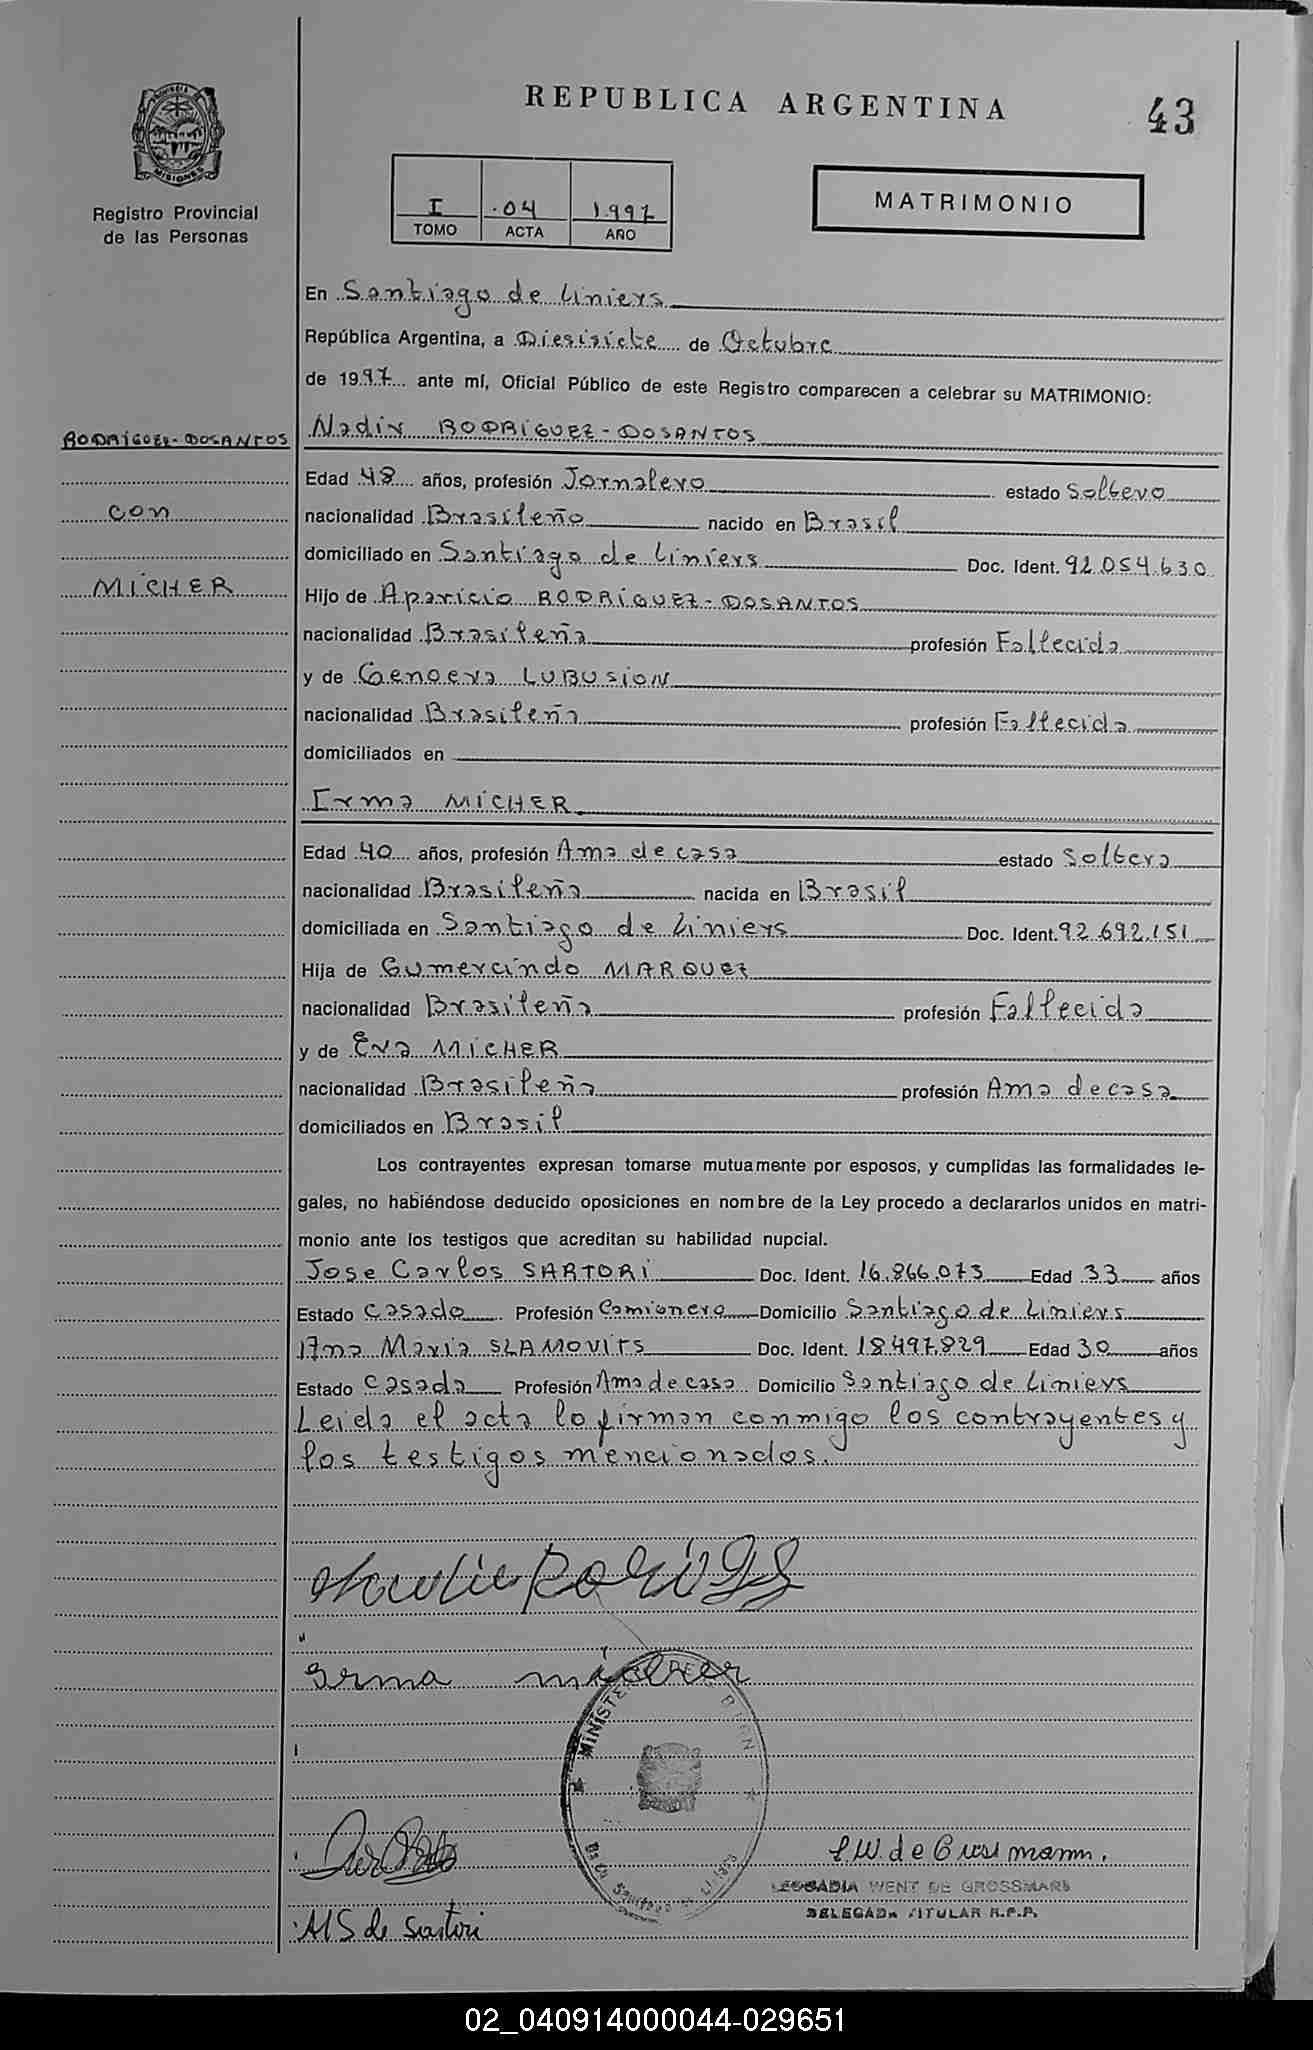 REPUBLICA ARGENTINA
43
PROVINCIA DE
MISIONES
Registro Provincial
de las Personas
I .04 1.997
TOMO ACTA AÑO
MATRIMONIO
En Santiago de Liniers
República Argentina, a Diesisiete de Octubre
de 1997 ante mí, Oficial Público de este Registro comparecen a celebrar su MATRIMONIO:
RODRÍGUEZ-DOSANTOS
con
MICHER
Nadir RODRÍGUEZ-DOSANTOS
Edad 48 años, profesión Jornalero estado Soltero
nacionalidad Brasileño nacido en Brasil
domiciliado en Santiago de Liniers Doc. Ident. 92.054.630
Hijo de Aparicio RODRÍGUEZ-DOSANTOS
nacionalidad Brasileña profesión Fallecida
y de Genoeva LUBUSION
nacionalidad Brasileña profesión Fallecida
domiciliados en
Irma MICHER
Edad 40 años, profesión Ama de casa estado Soltera
nacionalidad Brasileña nacida en Brasil
domiciliada en Santiago de Liniers Doc. Ident. 92.692.151
Hija de Gumercindo MARQUEZ
nacionalidad Brasileña profesión Fallecida
y de Eva MICHER
nacionalidad Brasileña profesión Ama de casa
domiciliados en Brasil
Los contrayentes expresan tomarse mutuamente por esposos, y cumplidas las formalidades le-
gales, no habiéndose deducido oposiciones en nombre de la Ley procedo a declararlos unidos en matri-
monio ante los testigos que acreditan su habilidad nupcial.
Jose Carlos SARTORI Doc. Ident. 16.866.073 Edad 33 años
Estado Casado Profesión Camionero Domicilio Santiago de Liniers
Ana Maria SLAMOVITS Doc. Ident. 18.497.829 Edad 30 años
Estado Casada Profesión Ama de casa Domicilio Santiago de Liniers
Leida el acta lo firman conmigo los contrayentes y
los testigos mencionados.
Irma micher
MINISTE
L.W de Grossmann.
LEOCADIA WENT DE GROSSMANN
DELEGADA TITULAR R.P.P.
MS de Sartori
02_040914000044-029651